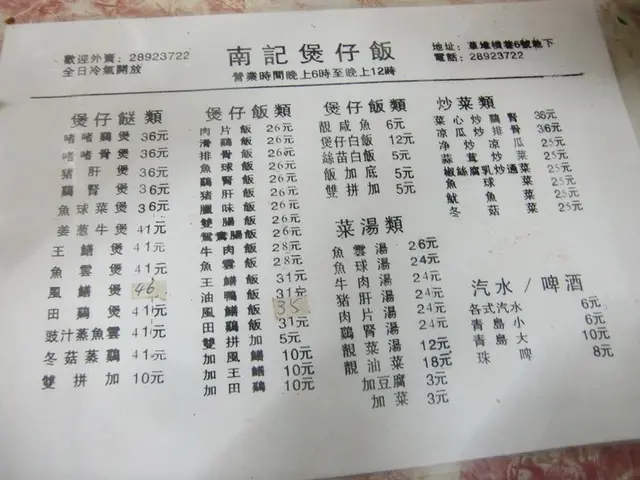 歡迎外賣: 28923722
全日冷氣開放
南記煲仔飯
營業時間晚上6時至晚上12時
電話: 28923722
煲仔餸類
啫啫鷄煲 36元
啫啫骨煲 36元
豬肝煲 36元
鷄腎煲 36元
魚球菜煲 36元
姜葱牛煲 41元
王鱔煲 41元
魚雲煲 41元
風鱔煲 46
田鷄煲 41元
豉汁蒸魚雲 41元
冬菇蒸鷄 41元
雙拼加 10元
煲仔飯類
肉片飯 26元
滑鷄飯 26元
排骨飯 26元
魚球飯 26元
鷄腎飯 26元
豬肝飯 26元
臘味飯 26元
雙腸飯 26元
鴛鴦腸飯 26元
牛肉飯 28元
魚雲飯 28元
王鱔飯 31元
油鴨飯 31元
風鱔飯 35
田鷄飯 31元
雙拼加 5元
加風鱔 10元
加王鱔 10元
加田鷄 10元
煲仔飯類
靚咸魚 6元
煲仔白飯 12元
絲苗白飯 5元
飯加底 5元
雙拼加 5元
菜湯類
魚雲湯 26元
魚球湯 24元
牛肉湯 24元
豬肝湯 24元
肉片湯 24元
鷄腎湯 24元
靚菜湯 12元
靚油菜 18元
加豆腐 3元
加菜 3元
炒菜類
菜心炒鷄腎 36元
凉瓜炒排骨 36元
净炒凉瓜 25元
蒜茸炒菜 25元
椒絲腐乳炒通菜 25元
魚球菜 25元
魷魚菜 25元
冬菇菜 25元
汽水/啤酒
各式汽水 6元
青島小 6元
青島大 10元
珠啤 8元